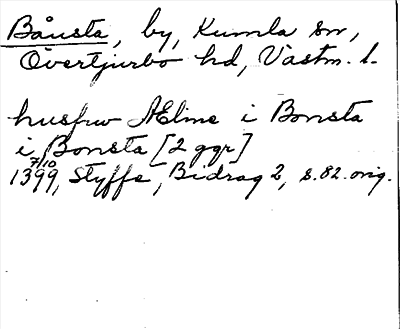 Bånsta, by, Kumla sn,
Övertjurbo hd, Västm. l.
husfrw Æline i Bonsta
i Bonsta [2 ggr]
7/10
1399, Styffe, Bidrag 2, s. 82. orig.